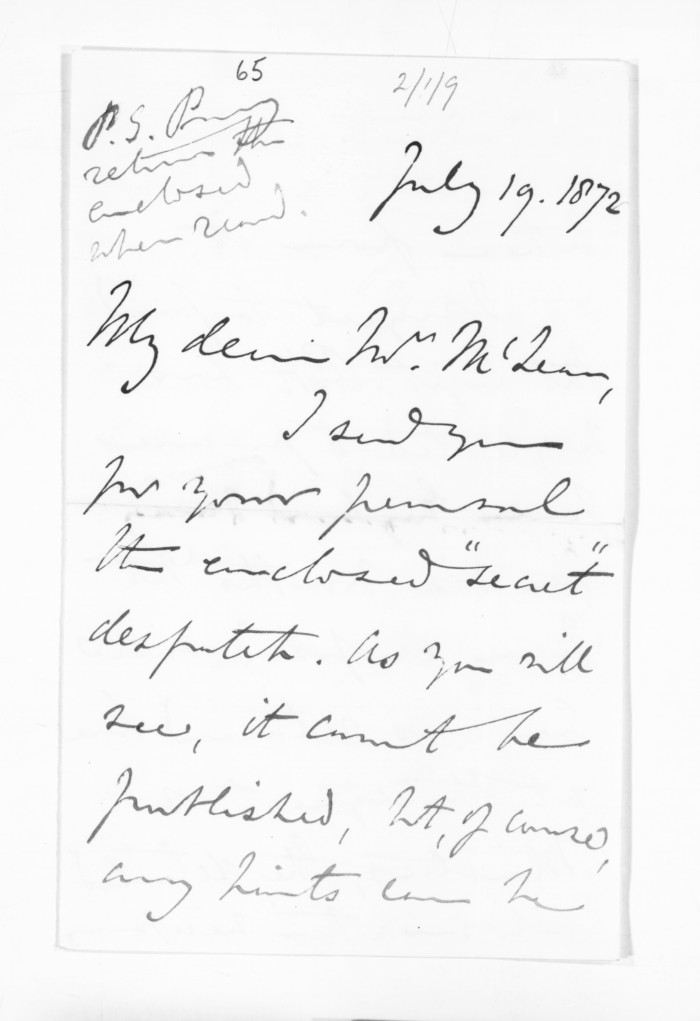 65
2/1/9
P.S. Pray
return the
enclosed
when read.
July 19. 1872
My dear Mr. McLean,
I send you
for your perusal
the enclosed "secret"
despatch. As you will
see, it cannot be
published, but, of course,
any hints can be